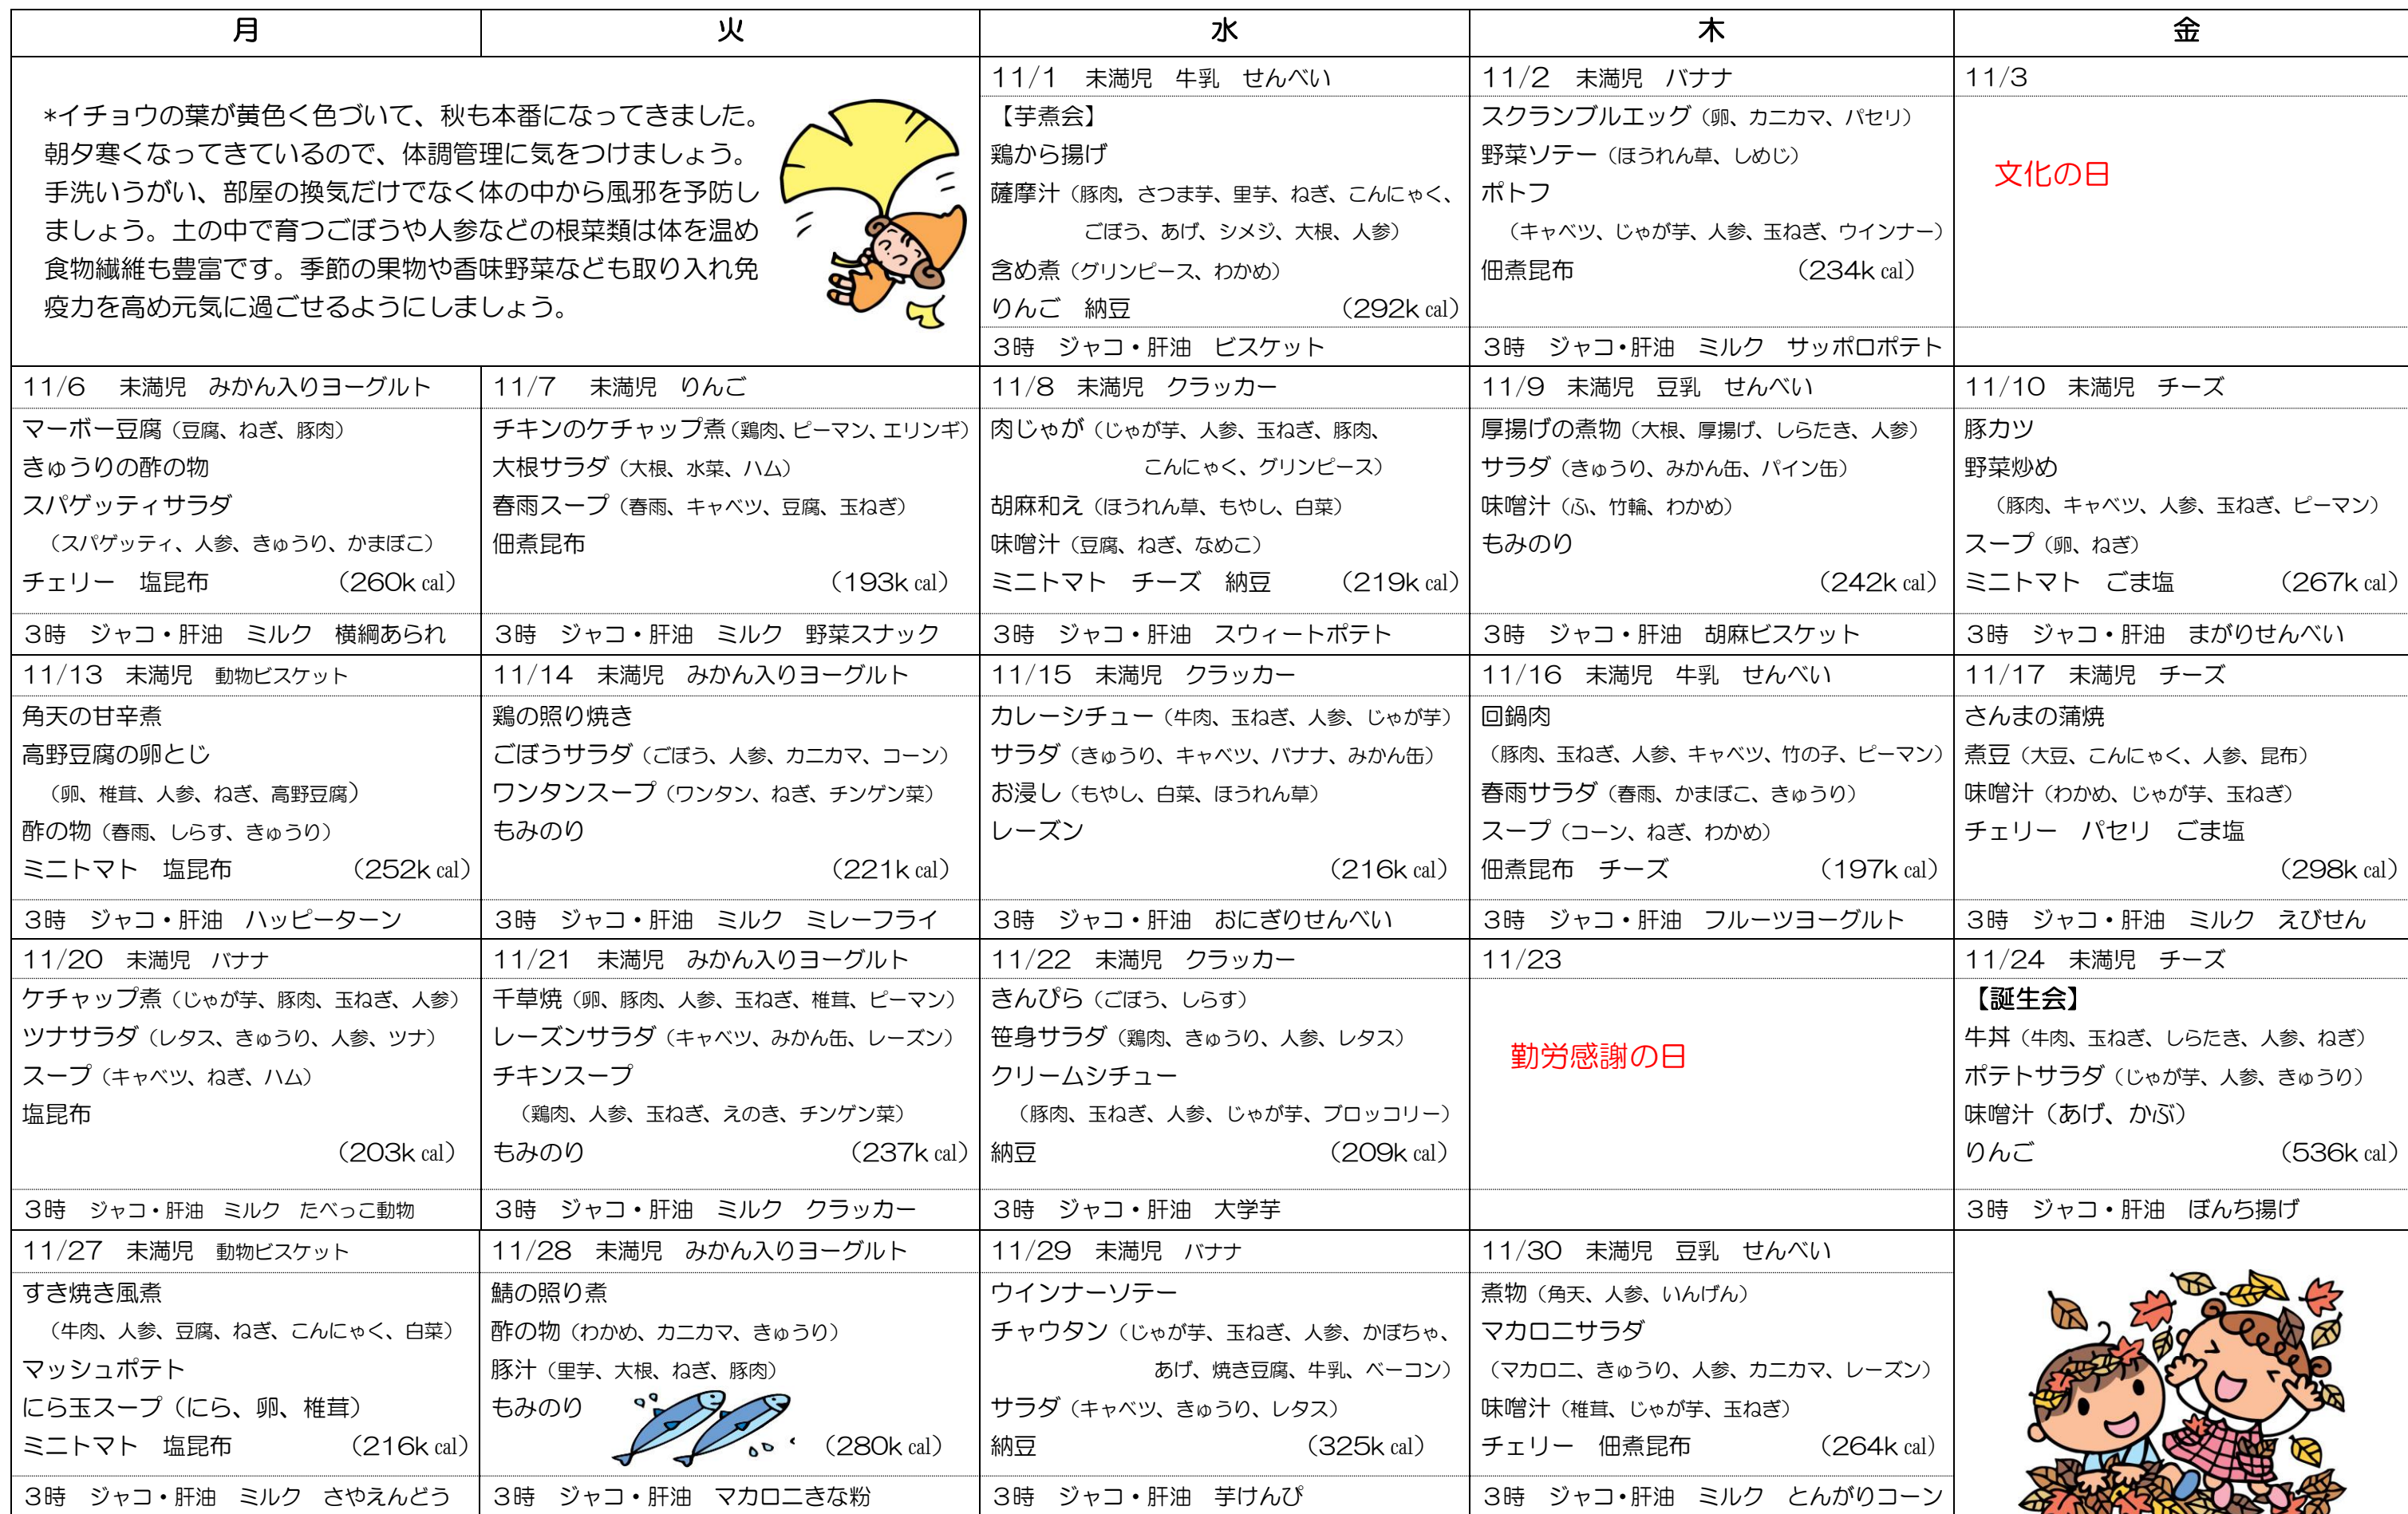 月 火 水 木 金
*イチョウの葉が黄色く色づいて、秋も本番になってきました。
朝夕寒くなってきているので、体調管理に気をつけましょう。
手洗いうがい、部屋の換気だけでなく体の中から風邪を予防し
ましょう。土の中で育つごぼうや人参などの根菜類は体を温め
食物繊維も豊富です。季節の果物や香味野菜なども取り入れ免
疫力を高め元気に過ごせるようにしましょう。
11/1 未満児 牛乳 せんべい
【芋煮会】
鶏から揚げ
薩摩汁（豚肉，さつま芋、里芋、ねぎ、こんにゃく、
ごぼう、あげ、シメジ、大根、人参）
含め煮（グリンピース、わかめ）
りんご 納豆 （292kcal）
3時 ジャコ・肝油 ビスケット
11/2 未満児 バナナ
スクランブルエッグ（卵、カニカマ、パセリ）
野菜ソテー（ほうれん草、しめじ）
ポトフ
（キャベツ、じゃが芋、人参、玉ねぎ、ウインナー）
佃煮昆布 （234kcal）
3時 ジャコ・肝油 ミルク サッポロポテト
11/3
文化の日
11/6 未満児 みかん入りヨーグルト
マーボー豆腐（豆腐、ねぎ、豚肉）
きゅうりの酢の物
スパゲッティサラダ
（スパゲッティ、人参、きゅうり、かまぼこ）
チェリー 塩昆布 （260kcal）
3時 ジャコ・肝油 ミルク 横綱あられ
11/7 未満児 りんご
チキンのケチャップ煮（鶏肉、ピーマン、エリンギ）
大根サラダ（大根、水菜、ハム）
春雨スープ（春雨、キャベツ、豆腐、玉ねぎ）
佃煮昆布
（193kcal）
3時 ジャコ・肝油 ミルク 野菜スナック
11/8 未満児 クラッカー
肉じゃが（じゃが芋、人参、玉ねぎ、豚肉、
こんにゃく、グリンピース）
胡麻和え（ほうれん草、もやし、白菜）
味噌汁（豆腐、ねぎ、なめこ）
ミニトマト チーズ 納豆 （219kcal）
3時 ジャコ・肝油 スウィートポテト
11/9 未満児 豆乳 せんべい
厚揚げの煮物（大根、厚揚げ、しらたき、人参）
サラダ（きゅうり、みかん缶、パイン缶）
味噌汁（ふ、竹輪、わかめ）
もみのり
（242kcal）
3時 ジャコ・肝油 胡麻ビスケット
11/10 未満児 チーズ
豚カツ
野菜炒め
（豚肉、キャベツ、人参、玉ねぎ、ピーマン）
スープ（卵、ねぎ）
ミニトマト ごま塩 （267kcal）
3時 ジャコ・肝油 まがりせんべい
11/13 未満児 動物ビスケット
角天の甘辛煮
高野豆腐の卵とじ
（卵、椎茸、人参、ねぎ、高野豆腐）
酢の物（春雨、しらす、きゅうり）
ミニトマト 塩昆布 （252kcal）
3時 ジャコ・肝油 ハッピーターン
11/14 未満児 みかん入りヨーグルト
鶏の照り焼き
ごぼうサラダ（ごぼう、人参、カニカマ、コーン）
ワンタンスープ（ワンタン、ねぎ、チンゲン菜）
もみのり
（221kcal）
3時 ジャコ・肝油 ミルク ミレーフライ
11/15 未満児 クラッカー
カレーシチュー（牛肉、玉ねぎ、人参、じゃが芋）
サラダ（きゅうり、キャベツ、バナナ、みかん缶）
お浸し（もやし、白菜、ほうれん草）
レーズン
（216kcal）
3時 ジャコ・肝油 おにぎりせんべい
11/16 未満児 牛乳 せんべい
回鍋肉
（豚肉、玉ねぎ、人参、キャベツ、竹の子、ピーマン）
春雨サラダ（春雨、かまぼこ、きゅうり）
スープ（コーン、ねぎ、わかめ）
佃煮昆布 チーズ （197kcal）
3時 ジャコ・肝油 フルーツヨーグルト
11/17 未満児 チーズ
さんまの蒲焼
煮豆（大豆、こんにゃく、人参、昆布）
味噌汁（わかめ、じゃが芋、玉ねぎ）
チェリー パセリ ごま塩
（298kcal）
3時 ジャコ・肝油 ミルク えびせん
11/20 未満児 バナナ
ケチャップ煮（じゃが芋、豚肉、玉ねぎ、人参）
ツナサラダ（レタス、きゅうり、人参、ツナ）
スープ（キャベツ、ねぎ、ハム）
塩昆布
（203kcal）
3時 ジャコ・肝油 ミルク たべっこ動物
11/21 未満児 みかん入りヨーグルト
千草焼（卵、豚肉、人参、玉ねぎ、椎茸、ピーマン）
レーズンサラダ（キャベツ、みかん缶、レーズン）
チキンスープ
（鶏肉、人参、玉ねぎ、えのき、チンゲン菜）
もみのり （237kcal）
3時 ジャコ・肝油 ミルク クラッカー
11/22 未満児 クラッカー
きんぴら（ごぼう、しらす）
笹身サラダ（鶏肉、きゅうり、人参、レタス）
クリームシチュー
（豚肉、玉ねぎ、人参、じゃが芋、ブロッコリー）
納豆 （209kcal）
3時 ジャコ・肝油 大学芋
11/23
勤労感謝の日
11/24 未満児 チーズ
【誕生会】
牛丼（牛肉、玉ねぎ、しらたき、人参、ねぎ）
ポテトサラダ（じゃが芋、人参、きゅうり）
味噌汁（あげ、かぶ）
りんご （536kcal）
3時 ジャコ・肝油 ぼんち揚げ
11/27 未満児 動物ビスケット
すき焼き風煮
（牛肉、人参、豆腐、ねぎ、こんにゃく、白菜）
マッシュポテト
にら玉スープ（にら、卵、椎茸）
ミニトマト 塩昆布 （216kcal）
3時 ジャコ・肝油 ミルク さやえんどう
11/28 未満児 みかん入りヨーグルト
鯖の照り煮
酢の物（わかめ、カニカマ、きゅうり）
豚汁（里芋、大根、ねぎ、豚肉）
もみのり
（280kcal）
3時 ジャコ・肝油 マカロニきな粉
11/29 未満児 バナナ
ウインナーソテー
チャウタン（じゃが芋、玉ねぎ、人参、かぼちゃ、
あげ、焼き豆腐、牛乳、ベーコン）
サラダ（キャベツ、きゅうり、レタス）
納豆 （325kcal）
3時 ジャコ・肝油 芋けんぴ
11/30 未満児 豆乳 せんべい
煮物（角天、人参、いんげん）
マカロニサラダ
（マカロニ、きゅうり、人参、カニカマ、レーズン）
味噌汁（椎茸、じゃが芋、玉ねぎ）
チェリー 佃煮昆布 （264kcal）
3時 ジャコ・肝油 ミルク とんがりコーン